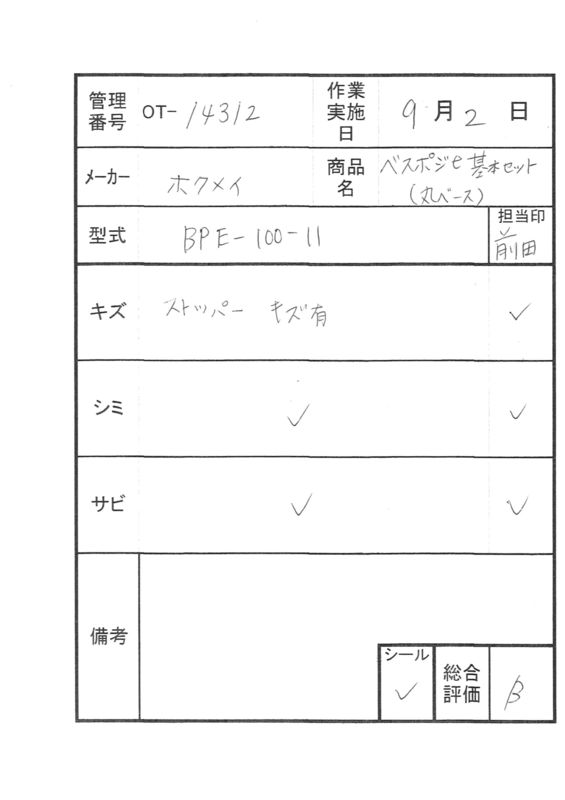 管理番号 OT-14312 作業実施日 9月2日
メーカー ホクメイ 商品名 ベスポジe基本セット
(丸ベース)
型式 BPE-100-11 担当印 前田
キズ ストッパー キズ有 ✓
シミ ✓ ✓
サビ ✓ ✓
備考
シール ✓ 総合評価 β